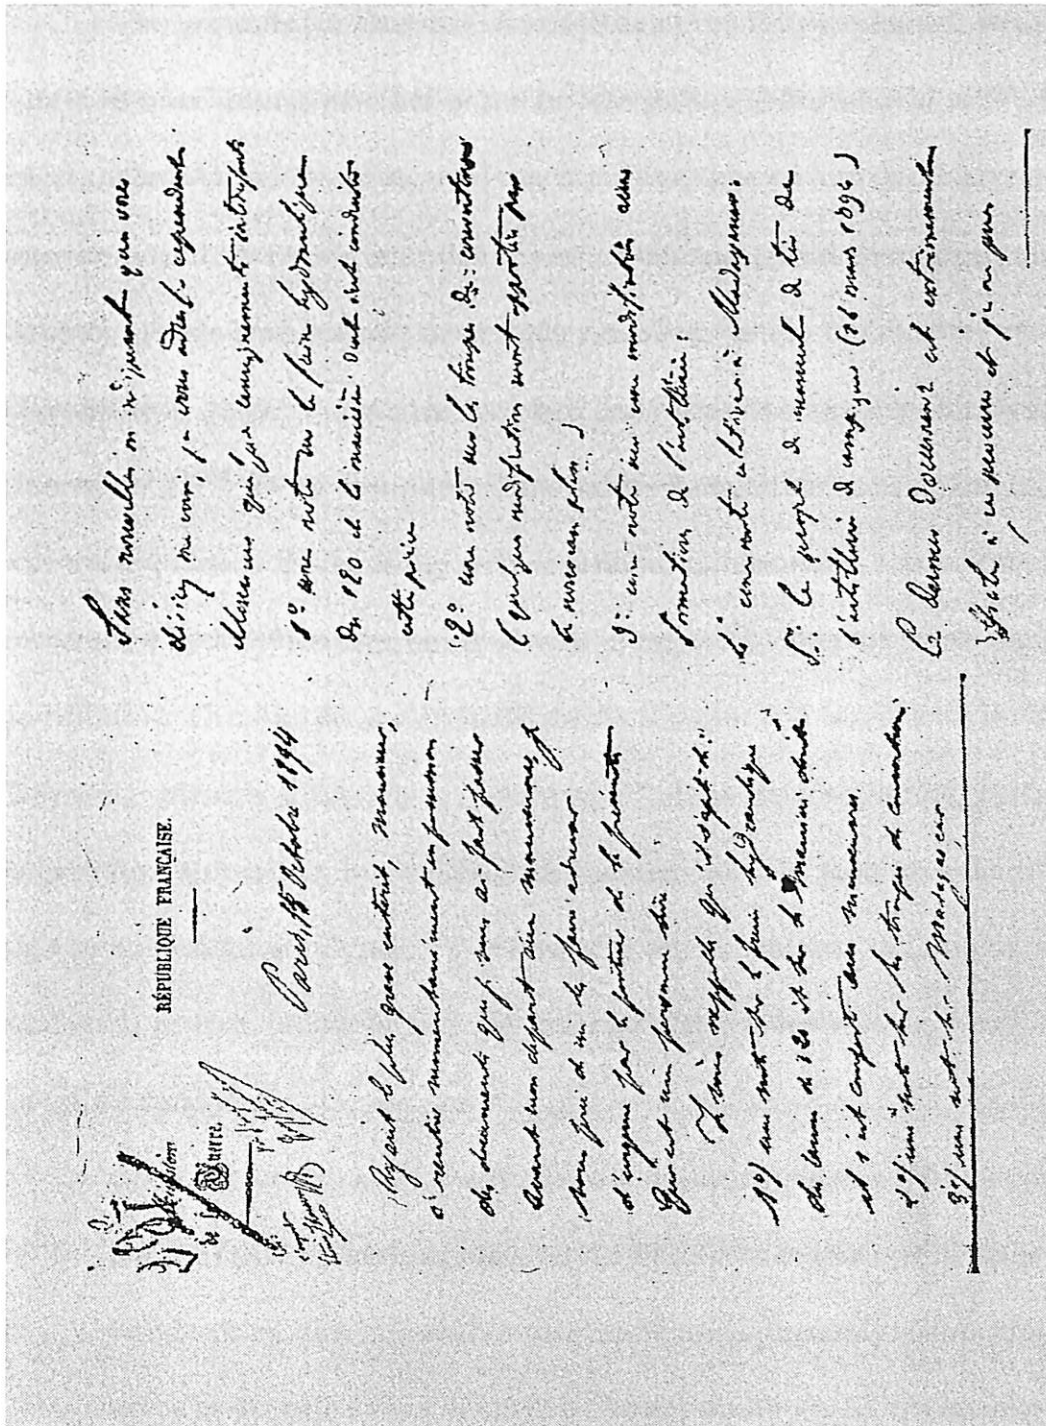 Ministère
de la Guerre.
RÉPUBLIQUE FRANÇAISE.
Paris, 15 Octobre 1894
Ayant le plus grave intérêt, Monsieur,
à rentrer momentanément en possession
des documents que je vous ai fait passer
avant mon départ aux manoeuvres, je
vous prie de me les faire adresser
d'urgence par le porteur de la présente
qui est une personne sûre
Je vous rappelle qu'il s'agit de:
1°) une note sur le frein hydraulique
du canon de 120 et sur la manière dont
il s'est comporté aux manoeuvres
2°) une note sur les troupes de couverture
3°) une note sur Madagascar
Sans nouvelles m'indiquant que vous
désirez me voir, je vous adresse cependant
Monsieur quelques renseignements intéressants
1° une note sur le frein hydraulique
du 120 et la manière dont s'est conduite
cette pièce
2° une note sur les troupes de couverture
(quelques modifications seront apportées par
le nouveau plan.)
3° une note sur une modification aux
formations de l'artillerie:
4° une note relative à Madagascar.
5° le projet de manuel de tir de
l'artillerie de campagne (14 mars 1894)
Ce dernier document est extrêmement
difficile à se procurer et je ne puis